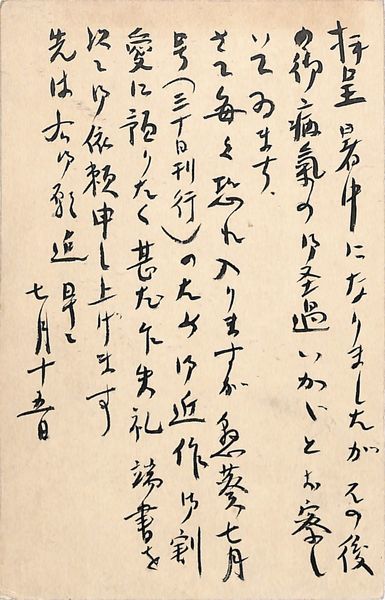 拝呈 暑中になりましたが其の後
の御病氣の御経過いかゞとお察し
いてゐます、
さて毎々恐れ入りますが 葵七月
号(三十日刊行)のため御近作御割
愛に預りたく甚だ乍失礼端書を
以て御依頼申し上げます
先は右御願迄 早々
七月十五日